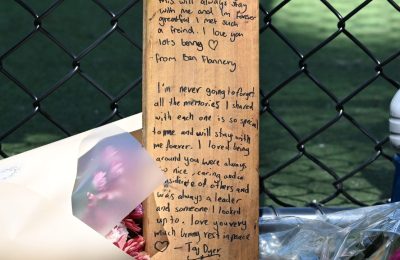 this will always stay
with me and I'm forever
greatful I met such
a freind. I love you
lots benny ♡
- from Ben Flannery
I'm never going to forget
all the memories I shared
with each one is so special
to me and will stay with
me forever. I loved being
around you were always
so nice, caring and
considerate of others and
was always a leader
and someone I looked
up to. love you very
much benny rest in peace
♡ - Jay Dyer